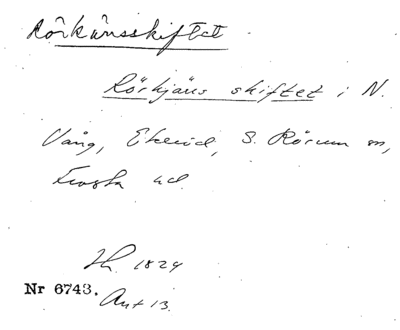 Rörkärrsskiftet
Rörkjärrs skiftet i N.
Vång, Ekeröd, S. Rörum sn,
Frosta hd
Lh. 1824
Nr 6743.
Aut 13.